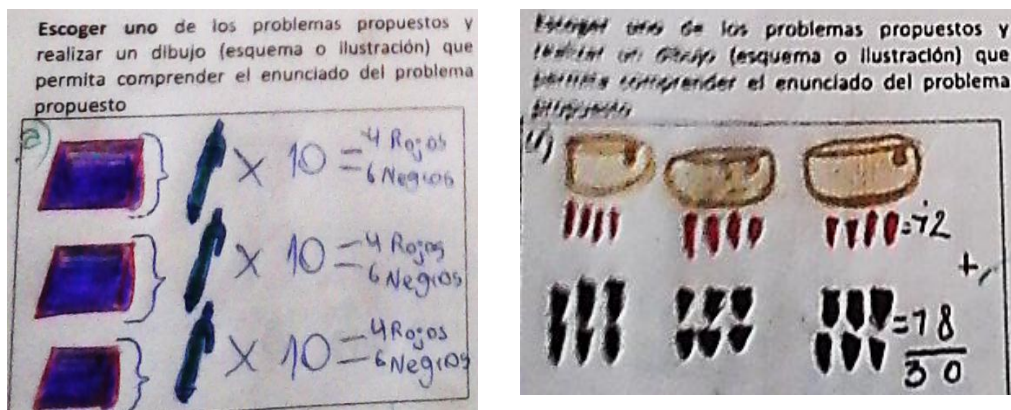 Escoger uno de los problemas propuestos y
realizar un dibujo (esquema o ilustración) que
permita comprender el enunciado del problema
propuesto
a)
x 10 = 4 Rojos
6 Negros
x 10 = 4 Rojos
6 Negros
x 10 = 4 Rojos
6 Negros
Escoger uno de los problemas propuestos y
realizar un dibujo (esquema o ilustración) que
permita comprender el enunciado del problema
propuesto
=12
+
=18
30